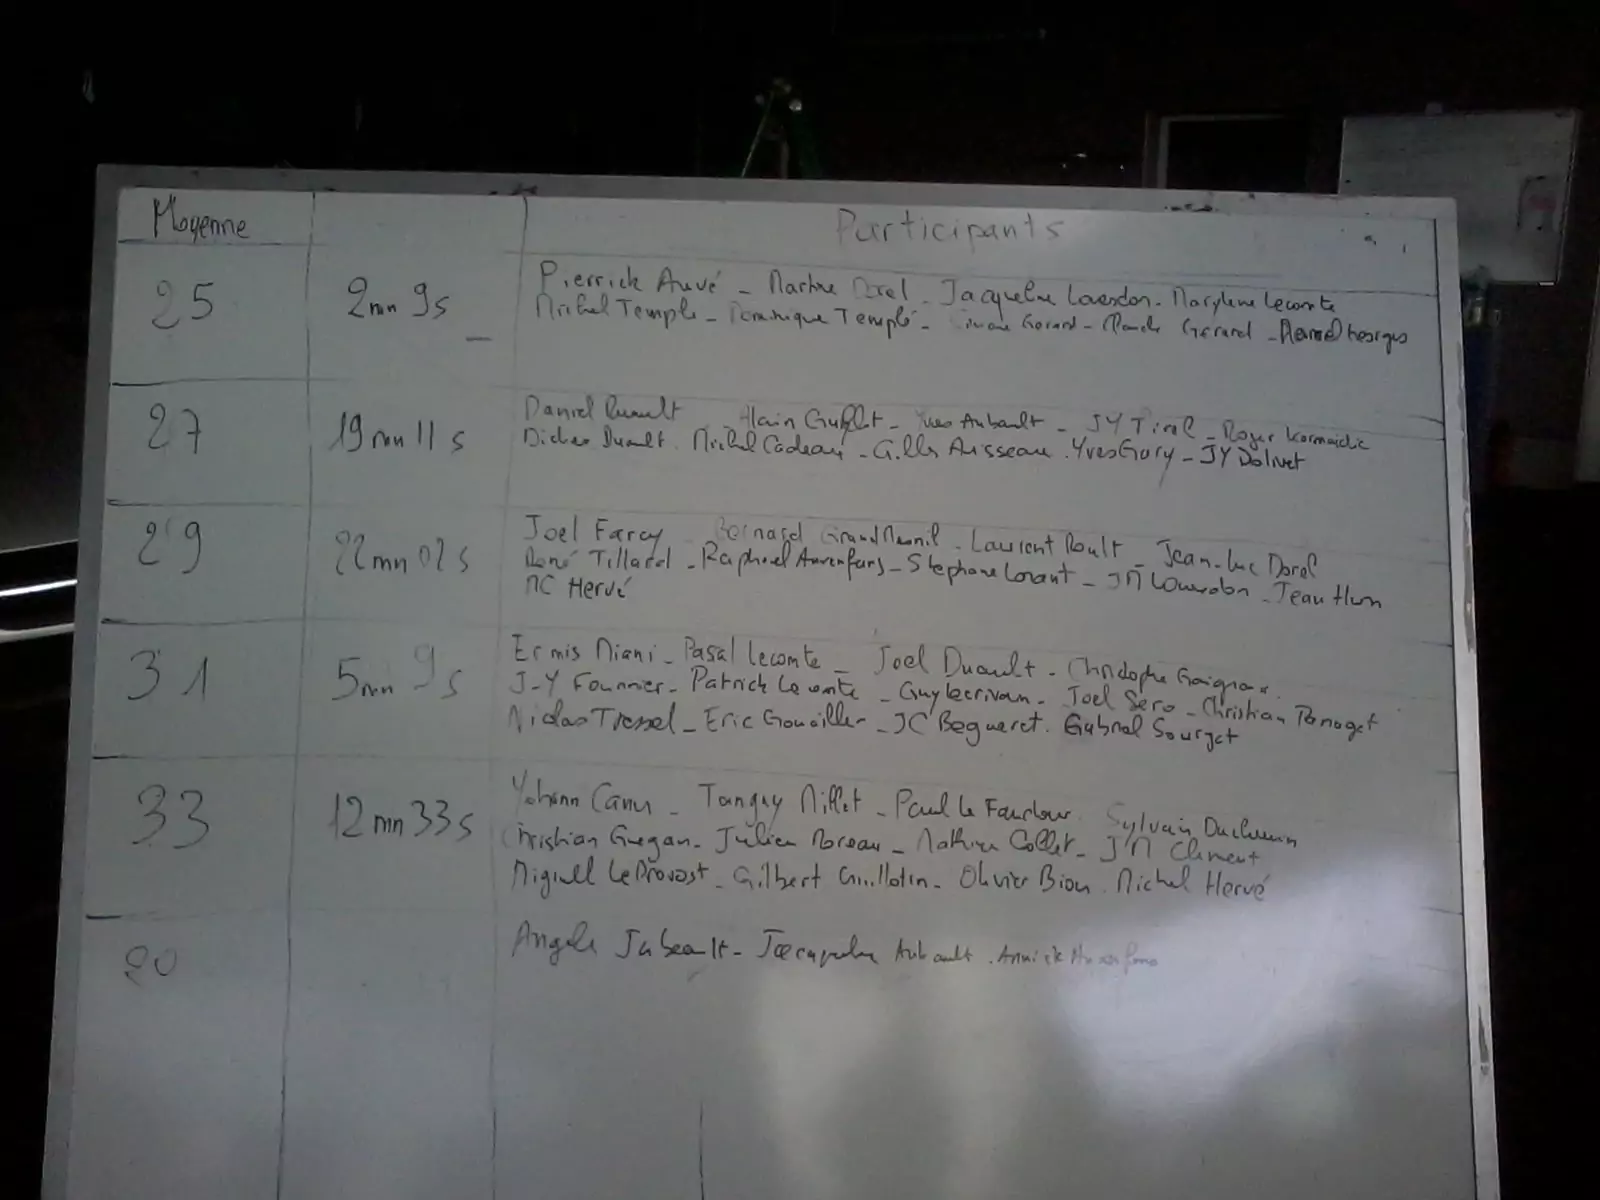 Moyenne Participants
25 2mn 9s Pierrick Auvé - Martine Dorel - Jacqueline Lourdon - Marylene Lecomte
Michel Temple - Dominique Templé - Gérard - Gérard - Georges
27 19mn 11s Daniel - Alain - Yves Aubault - JY Tirel - Roger
Didier Duault - Michel Cadeau - Gilles Aisseau - Yves Gory - JY Dolivet
29 22mn 02s Joel Farcy - Bernard GrandMesnil - Laurent Roult - Jean-Luc Dorel
René Tillard - Raphael - Stephane Lorant - JM - Jean
MC Hervé
31 5mn 9s Ermis Miani - Pasal Lecomte - Joel Duault - Christophe
J-Y Fournier - Patrick Lecomte - Guy Lecrivain - Joel Sero - Christian
Nicolas Tressel - Eric - JC Begueret - Gabriel Sourget
33 12mn 33s Yohann Canu - Tanguy Millet - Paul Le - Sylvain
Christian Guegan - Julien Moreau - Mathieu Collet - JM Clement
Miguel LeProvost - Gilbert Guillotin - Olivier Bion - Michel Hervé
20 Angele - Jacqueline Aubault - Annick